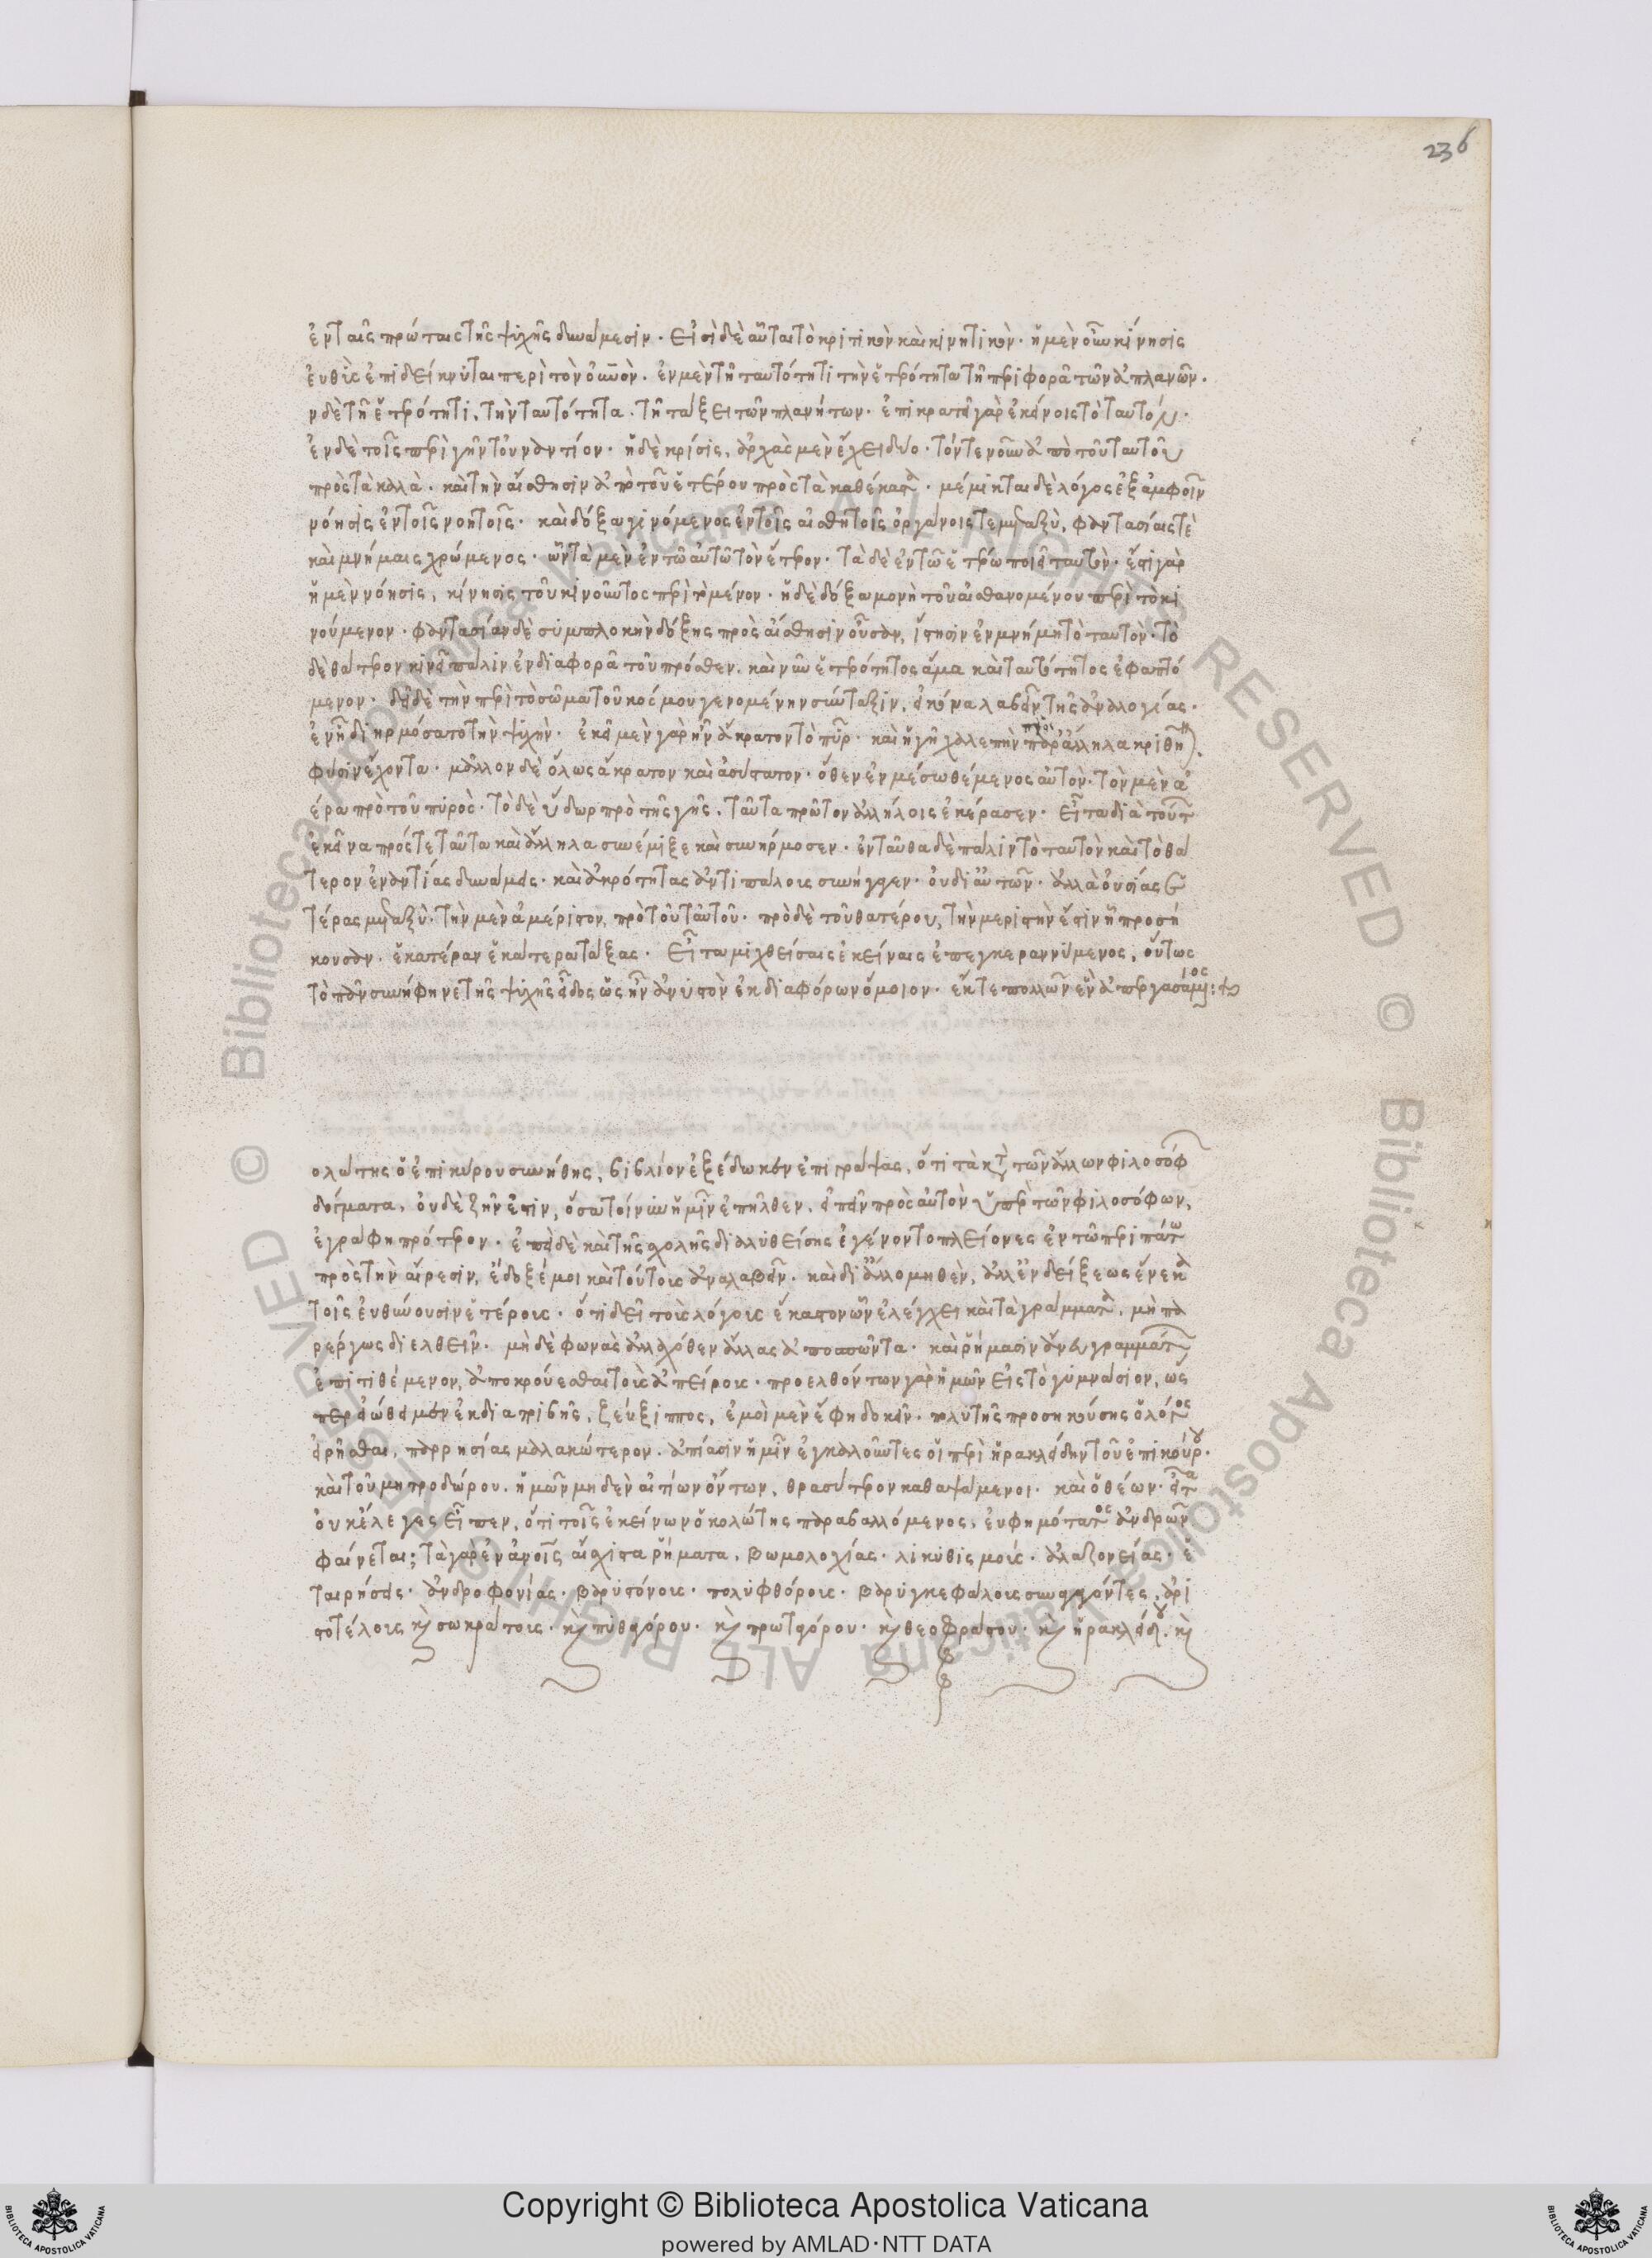 236
ἐν ταῖς πρώταις τῆς ψυχῆς δυνάμεσιν. Εἰσὶ δὲ αὗται τὸ κριτικὸν καὶ κινητικόν. ἡ μὲν οὖν κίνησις
ἐυθὺς ἐπιδείκνυται περὶ τὸν οὐνὸν. ἐν μὲν τῇ ταυτότητι τὴν ἑτερότητα τῇ περιφορᾷ τῶν ἀπλανῶν.
ν δὲ τῇ ἑτερότητι, τὴν ταυτότητα. τῇ τάξει τῶν πλανήτων. ἐπικρατεῖ γὰρ ἐκείνοις τὸ ταυτόν.
ἐν δὲ τοῖς περὶ γῆν τοὐναντίον. ἡ δὲ κρίσις, ἀρχὰς μὲν ἔχει δύο. τόν τε νοῦν ἀπὸ τοῦ ταυτοῦ
πρὸς τὰ καλὰ. καὶ τὴν αἴσθησιν ἀπὸ τοῦ ἑτέρου πρὸς τὰ καθέκαστα. μέμικται δὲ λόγος ἐξ ἀμφοῖν
νόησις ἐν τοῖς νοητοῖς. καὶ δόξα γινόμενος ἐν τοῖς αἰσθητοῖς ὀργάνοις τε μεταξὺ, φαντασίαις τὲ
καὶ μνήμαις χρώμενος. ὧν τὰ μὲν ἐν τῷ αὐτῷ τὸν ἕτερον. τὰ δὲ ἐν τῷ ἑτέρῳ ποιεῖ ταυτόν. ἔστι γὰρ
ἡ μὲν νόησις, κίνησις τοῦ κινοῦντος περὶ τὸ μένον. ἡ δὲ δόξα μονὴ τοῦ αἰσθανομένου περὶ τὸ κι
νούμενον. φαντασίαν δὲ συμπλοκὴν δόξης πρὸς αἴσθησιν οὖσαν, ἵστησιν ἐν μνήμῃ τὸ ταυτὸν. τὸ
δὲ θάτερον κινεῖ πάλιν ἐν διαφορᾷ τοῦ πρόσθεν. καὶ νῦν ἑτερότητος ἅμα καὶ ταυτότητος ἐφαπτό
μενον. δεῖ δὲ τὴν περὶ τὸ σῶμα τοῦ κόσμου γενομένην σύνταξιν, εἰκόνα λαβεῖν τῆς ἀναλογίας.
ἐν ᾗ διηρμόσατο τὴν ψυχὴν. ἐκεῖ μὲν γὰρ ἦν ἄκρα τον τὸ πῦρ. καὶ ἡ γῆ χαλεπὴν πρὸς παράλληλα κριθῆν
φύσιν ἔχοντα. μᾶλλον δὲ ὅλως ἄκρατον καὶ ἀσύστατον. ὅθεν ἐν μέσῳ θέμενος αὐτὸν. τὸν μὲν ἀ
έρα πρὸ τοῦ πυρὸς. τὸ δὲ ὕδωρ πρὸ τῆς γῆς. ταῦτα πρῶτον ἀλλήλοις ἐκέρασεν. Εἶτα διὰ τούτ
ἐκεῖνα πρός τε ταῦτα καὶ ἄλληλα συνέμιξε καὶ συνήρμοσεν. ἐνταῦθα δὲ πάλιν τὸ ταυτὸν καὶ τὸ θά
τερον ἐναντίας δυνάμεις. καὶ ἀκρότητας ἀντιπάλοις συνήγαγεν. οὐ δι αὑτῶν. ἀλλὰ οὐσίας ἑ
τέρας μεταξὺ. τὴν μὲν ἀμέριστον, πρὸ τοῦ ταὐτοῦ. πρὸ δὲ τοῦ θατέρου, τὴν μεριστὴν ἔστιν ᾗ προσή
κουσαν. ἑκατέραν ἑκατέρᾳ τάξας. Εἶτα μιχθείσαις ἐκείναις ἐπεγκεραννύμενος, οὕτως
τὸ πᾶν συνήφηνε τῆς ψυχῆς εἶδος ὡς ἦν ἀνυστὸν ἐκ διαφόρων ὅμοιον. ἔκ τε πολλῶν ἓν ἀπεργασάμενος:
ολώτης ὁ ἐπικούρου συνήθης, βιβλίον ἐξέδωκεν ἐπιγράψας, ὅτι τὰ κτ τῶν ἄλλων φιλοσόφ
δόγματα, οὐδὲ ζῆν ἐστιν, ὅσα τοίνυν ἡμῖν ἐπῆλθεν, εἰπεῖν πρὸς αὐτὸν ὑπὲρ τῶν φιλοσόφων,
ἐγράφη πρότερον. ἐπεὶ δὲ καὶ τῆς σχολῆς διαλυθείσης ἐγένοντο πλείονες ἐν τῷ περιπάτῳ
πρὸς τὴν αἵρεσιν, ἔδοξέ μοι καὶ τούτοις ἀναλαβεῖν. καὶ δι ἄλλο μηθὲν, ἀλλ ἐνδείξεως ἕνεκα
τοῖς ἐυθύνουσιν ἑτέροις. ὅτι δεῖ τοὶς λόγοις ἕκαστον ὧν ἐλέγχει καὶ τὰ γράμματα, μὴ πα
ρέργως διελθεῖν. μὴ δὲ φωνὰς ἀλλαχόθεν ἄλλας ἀποσπῶντα. καὶ ῥήμασιν ἄνευ γραμμάτ
ἐπιτιθέμενον, ἀποκρούεσθαι τοὶς ἀπείροις. προελθόντων γὰρ ἡμῶν εἰς τὸ γυμνάσιον, ὡς
περ εἰώθειμεν ἐκ διατριβῆς, ζεύξιππος, ἐμοὶ μὲν ἔφη δοκεῖν. πολὺ τῆς προσηκούσης ὁ λόγος
εἰρῆσθαι, παρρησίας μαλακώτερον. ἀπίασιν ἡμῖν ἐγκαλοῦντες οἱ περὶ ἡρακλείδην τοῦ ἐπικούρ.
καὶ τοῦ μητροδώρου. ἡμῶν μηδὲν αἰτίων ὄντων, θρασύτερον καθαψάμενοι. καὶ ὁ θέων. εἶτα
οὐκ ἔλεγες Εἶπεν, ὅτι τοῖς ἐκείνων ὁ κολώτης παραβαλλόμενος, ἐυφημότατος ἀνδρῶν
φαίνεται; τὰ γὰρ ἐν ἀνοις αἴσχιστα ῥήματα. βωμολοχίας. ληκυθισμοὶς. ἀλαζονείας. ἑ
ταιρήσεις. ἀνδροφονίας. βαρυστόνοις. πολυφθόροις. βαρυγκεφάλοις συναγαγόντες, ἀρι
στοτέλοις κὶ σωκράτοις. κὶ πυθαγόρου. κὶ πρωταγόρου. κὶ θεοφράστου. κὶ ἡρακλείδου. κὶ
© Biblioteca Apostolica Vaticana ALL RIGHTS RESERVED
© Biblioteca Apostolica Vaticana ALL RIGHTS RESERVED
Copyright © Biblioteca Apostolica Vaticana
powered by AMLAD·NTT DATA